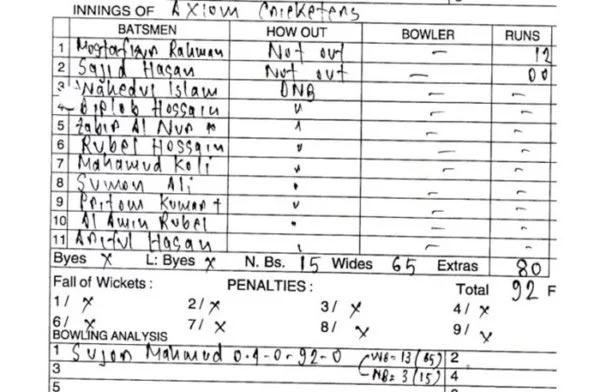 INNINGS OF Axiom Cricketers
BATSMEN HOW OUT BOWLER RUNS
1 Mostafizur Rahman Not out — 12
2 Sajid Hasan Not out — 00
3 Wahedul Islam DNB — —
4 Biplob Hossain " — —
5 Zabir Al Nur " — —
6 Rubel Hossain " — —
7 Mahamud Koli " — —
8 Sumon Ali " — —
9 Pritom Kumar + " — —
10 Al Amin Rubel " — —
11 Ariful Hasan " — —
Byes x L: Byes x N. Bs. 15 Wides 65 Extras 80
Fall of Wickets : PENALTIES : Total 92 F
1/ x 2/ x 3/ x 4/ x
6/ x 7/ x 8/ x 9/ x
BOWLING ANALYSIS
1 Sujon Mahmud 0.4-0-92-0 (WB=13(65) 2
3 NB=3(15) 4
5